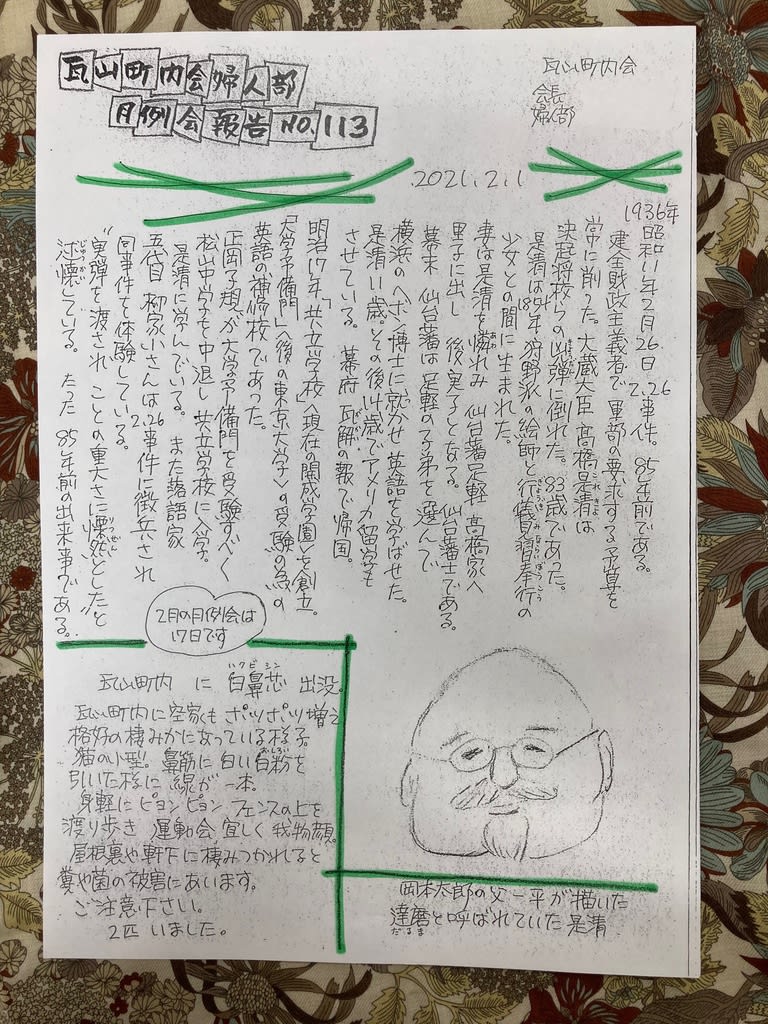 瓦山町内会婦人部
月例会報告 NO.113
瓦山町内会
会長
婦人部
2021.2.1
1936年
昭和11年2月26日 2.26事件。85年前である。
健全財政主義者で 軍部の要求する予算を
常に削った。大蔵大臣 高橋是清は
決起将校らの凶弾に倒れた。83歳であった。
是清は1854年 狩野派の絵師と行儀見習奉行の
少女との間に生まれた。
妻は是清を憐れみ 仙台藩足軽 高橋家へ
里子に出し 後実子となる。仙台藩士である。
幕末 仙台藩は 足軽の子弟を選んで
横浜のヘボン博士に就かせ英語を学ばせた。
是清11歳。その後14歳でアメリカ留学も
させている。幕府瓦解の報で帰国。
明治17年「共立学校」〈現在の開成学園〉を創立。
「大学予備門」〈後の東京大学〉の受験の為の
英語の補修校であった。
正岡子規が大学予備門を受験すべく
松山中学を中退し共立学校に入学。
是清に学んでいる。また落語家
五代目 柳家小さんは2.26事件に徴兵され
同事件を体験している。
"実弾を渡され ことの重大さに慄然とした"と
述懐している。たった85年前の出来事である。
2月の月例会は
17日です
瓦山町内 に 白鼻芯 出没。
ハクビシン
瓦山町内に空家もポツポツ増え
格好の棲みかになっている様子。
猫の小型。鼻筋に白い白粉を
おしろい
引いた様に 線が一本。
身軽にピョンピョン フェンスの上を
渡り歩き 運動会宜しく我物顔。
屋根裏や軒下に棲みつかれると
糞や菌の被害にあいます。
ご注意下さい。
2匹 いました。
岡本太郎の父一平が描いた
達磨と呼ばれていた 是清
だるま